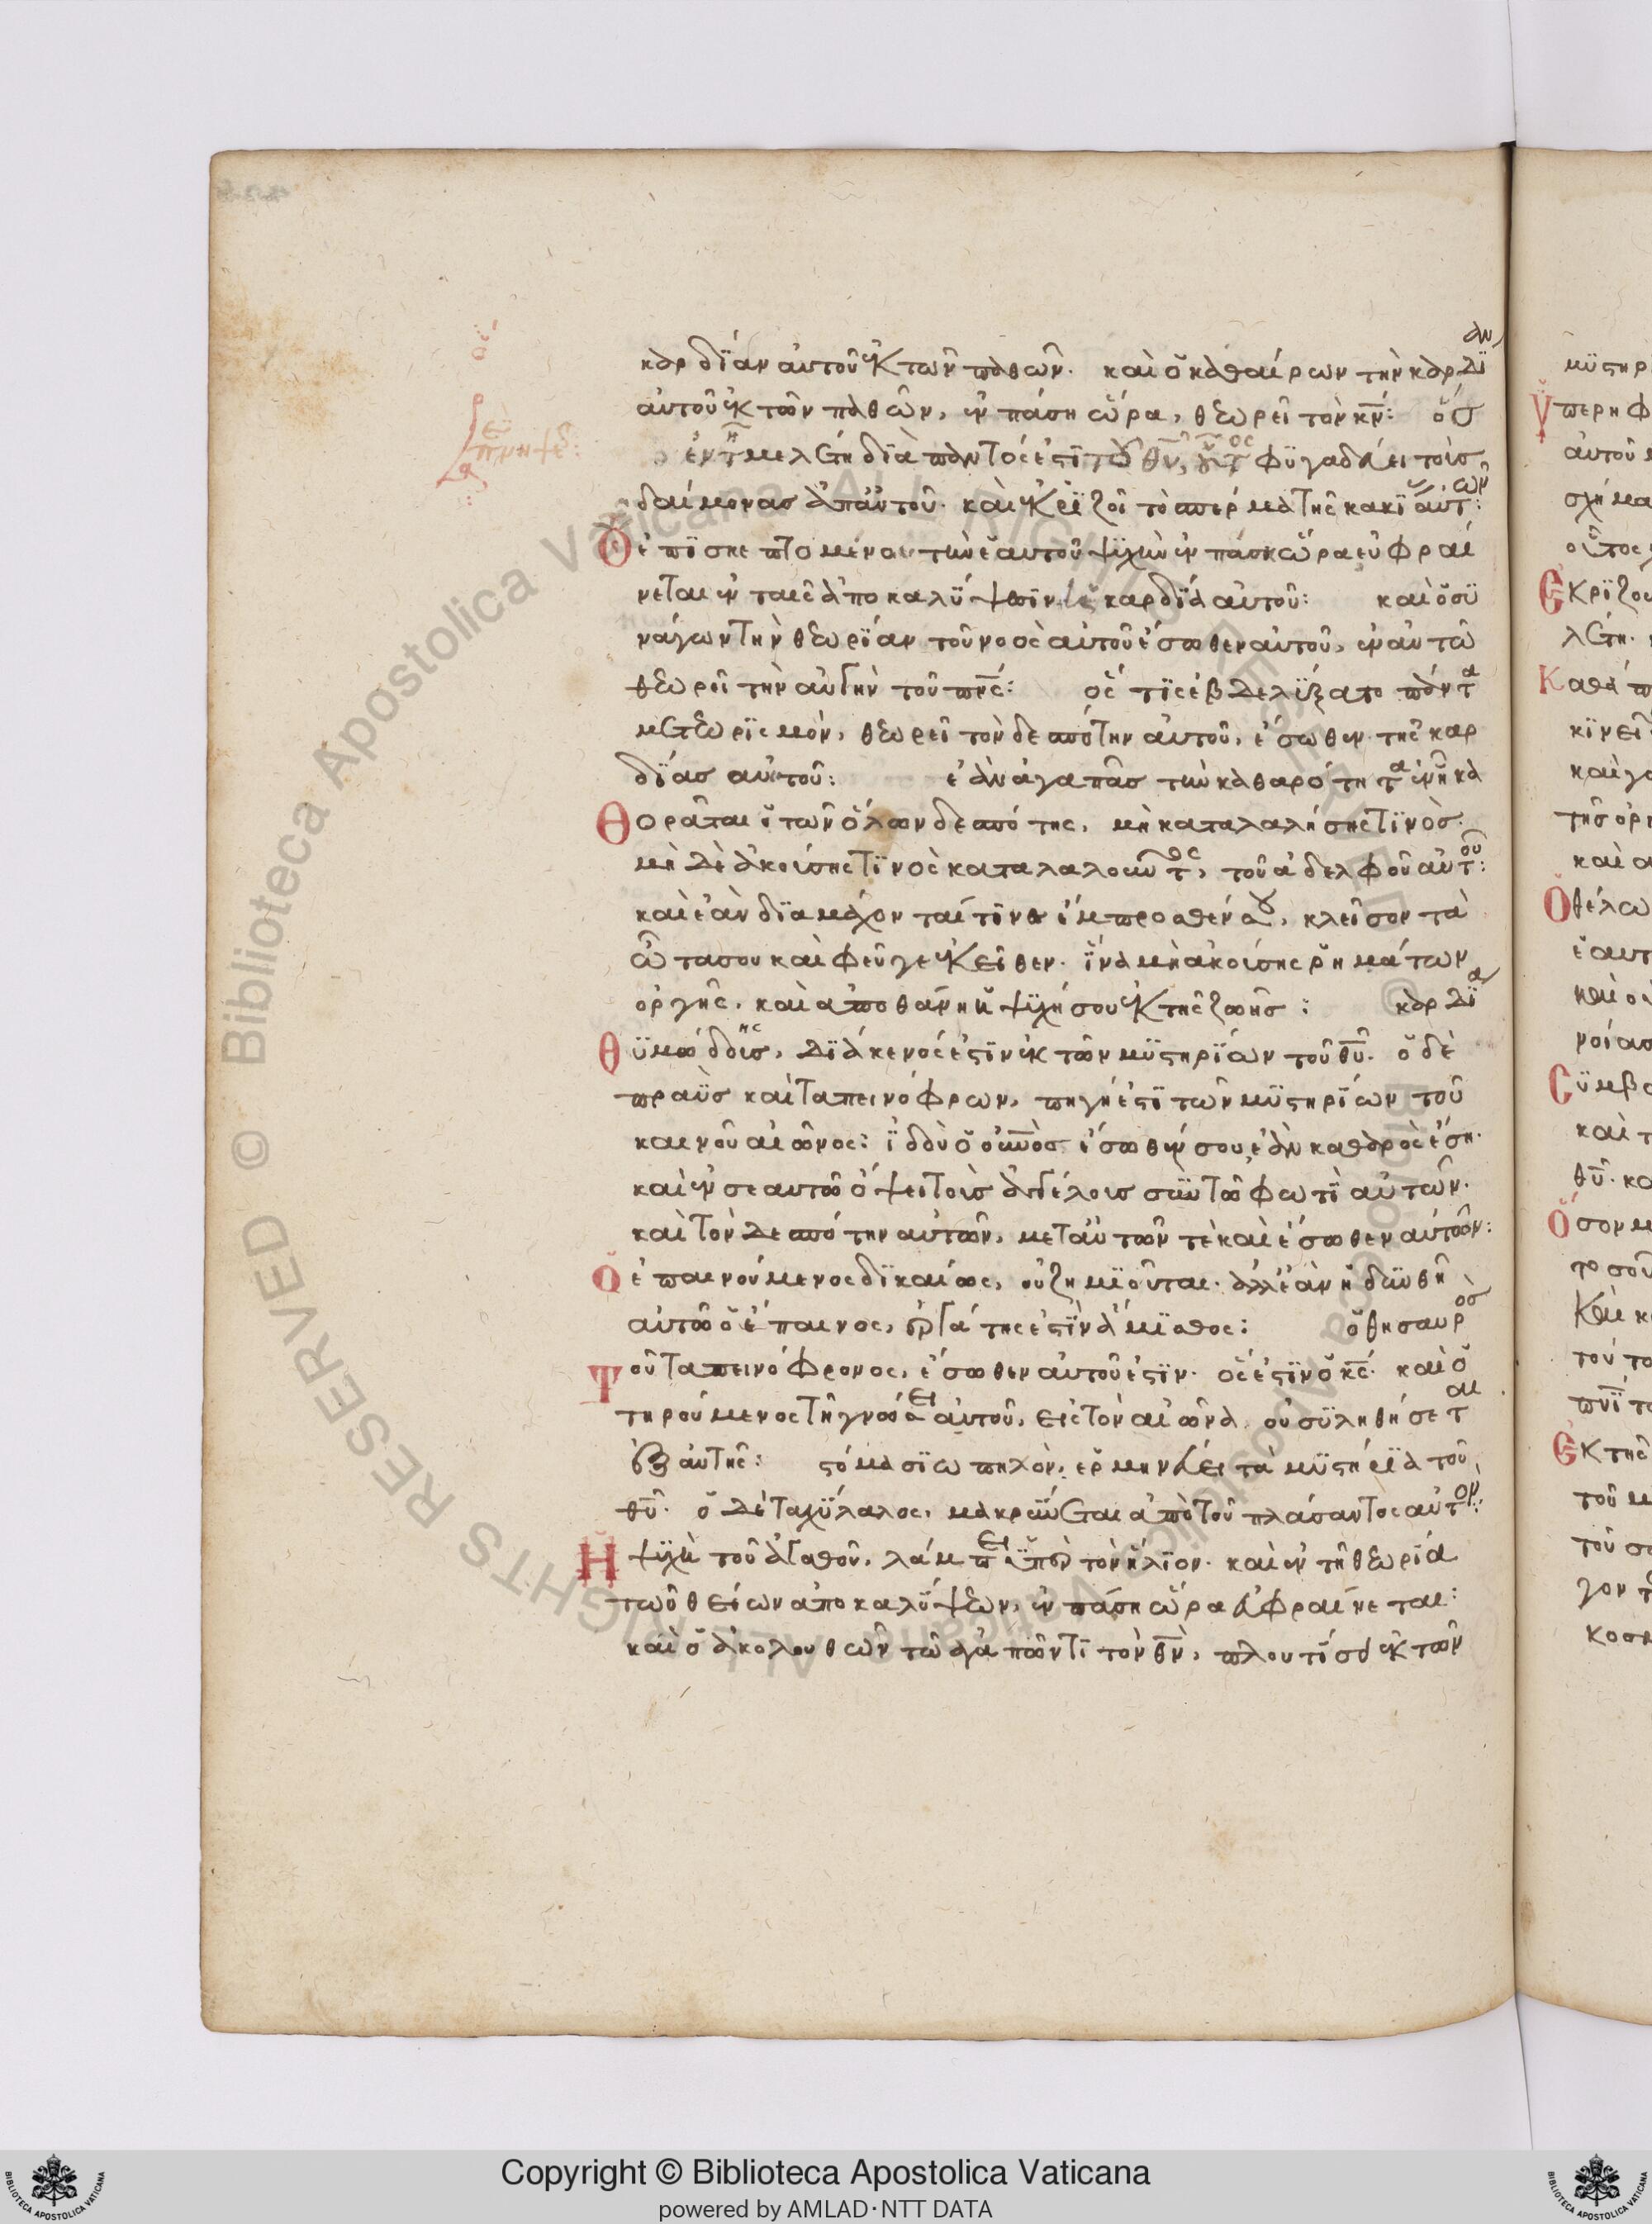 καρδΐαν αὐτοῦ ἐκ τῶν παθῶν. καὶ ὁ καθαίρων τὴν καρδΐαν
αὐτοῦ ἐκ τῶν παθῶν, ἐν πάση ὥρα, θεωρεῖ τὸν κν̅: ὅσ
μελέτη διὰ παντός ἐστϊ θν̅, φϋγαδεύει τοὺσ
δαίμονασ ἀπ αὐτοῦ. καὶ ἐκρϊζοῖ τὸ σπέρμα τῆς κακΐ αὐτῶν:
Ὁ ἐπϊσκεπτόμενος τὴν ἑαυτοῦ ψϋχὴν ἐν πάση ὥρα εὐφραί
νεται ἐν ταῖς ἀποκαλΰψεσϊν ἡ καρδΐα αὐτοῦ: καὶ ὁ συ
νάγων τὴν θεωρΐαν τοῦ νοὸς αὐτοῦ ἔσωθεν αὐτοῦ, ἐν αὐτῶ
θεωρεῖ τὴν αὐγὴν τοῦ πνς̅: ὅς τϊς ἐβδελΰξατο πάντα
μετεωρϊσμὸν, θεωρεῖ τὸν δεσπότην αὐτοῦ, ἔσωθεν τῆς καρ
δΐασ αὐτοῦ: ἐὰν ἀγαπᾶσ τὴν καθαρότητα ἐν ἧ κα
Θορᾶται ὁ τῶν ὅλων δεσπότης, μὴ καταλαλήσης τϊνὸσ.
μὴ δὲ ἀκούσης τϊνος καταλαλοῦντος, τοῦ ἀδελφοῦ αὐτοῦ:
καὶ ἐὰν δϊαμάχονταί τϊνες ἔμπροσθέν σου, κλεῖσον τὰ
ὦτα σου καὶ φεῦγε ἐκεῖθεν. ἵνα μὴ ἀκούσης ρημάτων
ὀργῆς, καὶ αποθάνη ἡ ψϋχή σου ἐκ τῆς ζωῆσ: καρδΐα
θϋμώδης, δϊάκενός ἐστϊν ἐκ τῶν μϋστηρΐων τοῦ θυ̅. ὁ δὲ
πραΰσ καὶ ταπεινόφρων, πηγή ἐστϊ τῶν μϋστηρΐων τοῦ
καινοῦ αἰῶνος: ἰδοὺ ὁ οὐνὸσ ἔσωθέν σου, ἐὰν καθαρὸς ἔση.
καὶ ἐν σεαυτῶ ὄψει τοὺσ ἀγγέλουσ σὺν τῶ φωτὶ αὐτῶν.
καὶ τὸν δεσπότην αὐτῶν, μετ αὐτῶν τὲ καὶ ἔσωθεν αὐτῶν:
Ὁ ἐπαινούμενος δϊκαίως, οὐ ζημϊοῦται. ἀλλ ἐὰν ἡδυνθῆ
αὐτῶ ὁ ἔπαινος, ἐργάτης ἐστϊν ἄμϊσθος: ὁ θησαυρὸσ
Τοῦ ταπεινόφρονος, ἔσωθεν αὐτοῦ ἐστϊν. ὅς ἐστϊν ὁ κς̅. καὶ ὁ
τηρούμενος τῆ γνώσει αὐτοῦ, εἰς τὸν αἰῶνα οὐ σϋληθήσεται
ἐξ αὐτῆς: στόμα σϊωπηλὸν, ερμηνεύει τὰ μϋστήρια τοῦ
θυ̅. ὁ δὲ ταχΰλαλος, μακρύνεται ἀπὸ τοῦ πλάσαντος αὐτὸν:
Ἡ ψϋχὴ τοῦ ἀγαθοῦ, λάμπει ὑπὲρ τὸν ἥλϊον. καὶ ἐν τῆ θεωρΐα
τῶν θείων αποκαλΰψεων, ἐν πάση ὥρα εὐφραίνεται:
καὶ ὁ ἀκολουθῶν τῶ ἀγαπῶντϊ τὸν θν̅, πλουτίσει ἐκ τῶν
Copyright © Biblioteca Apostolica Vaticana
powered by AMLAD·NTT DATA